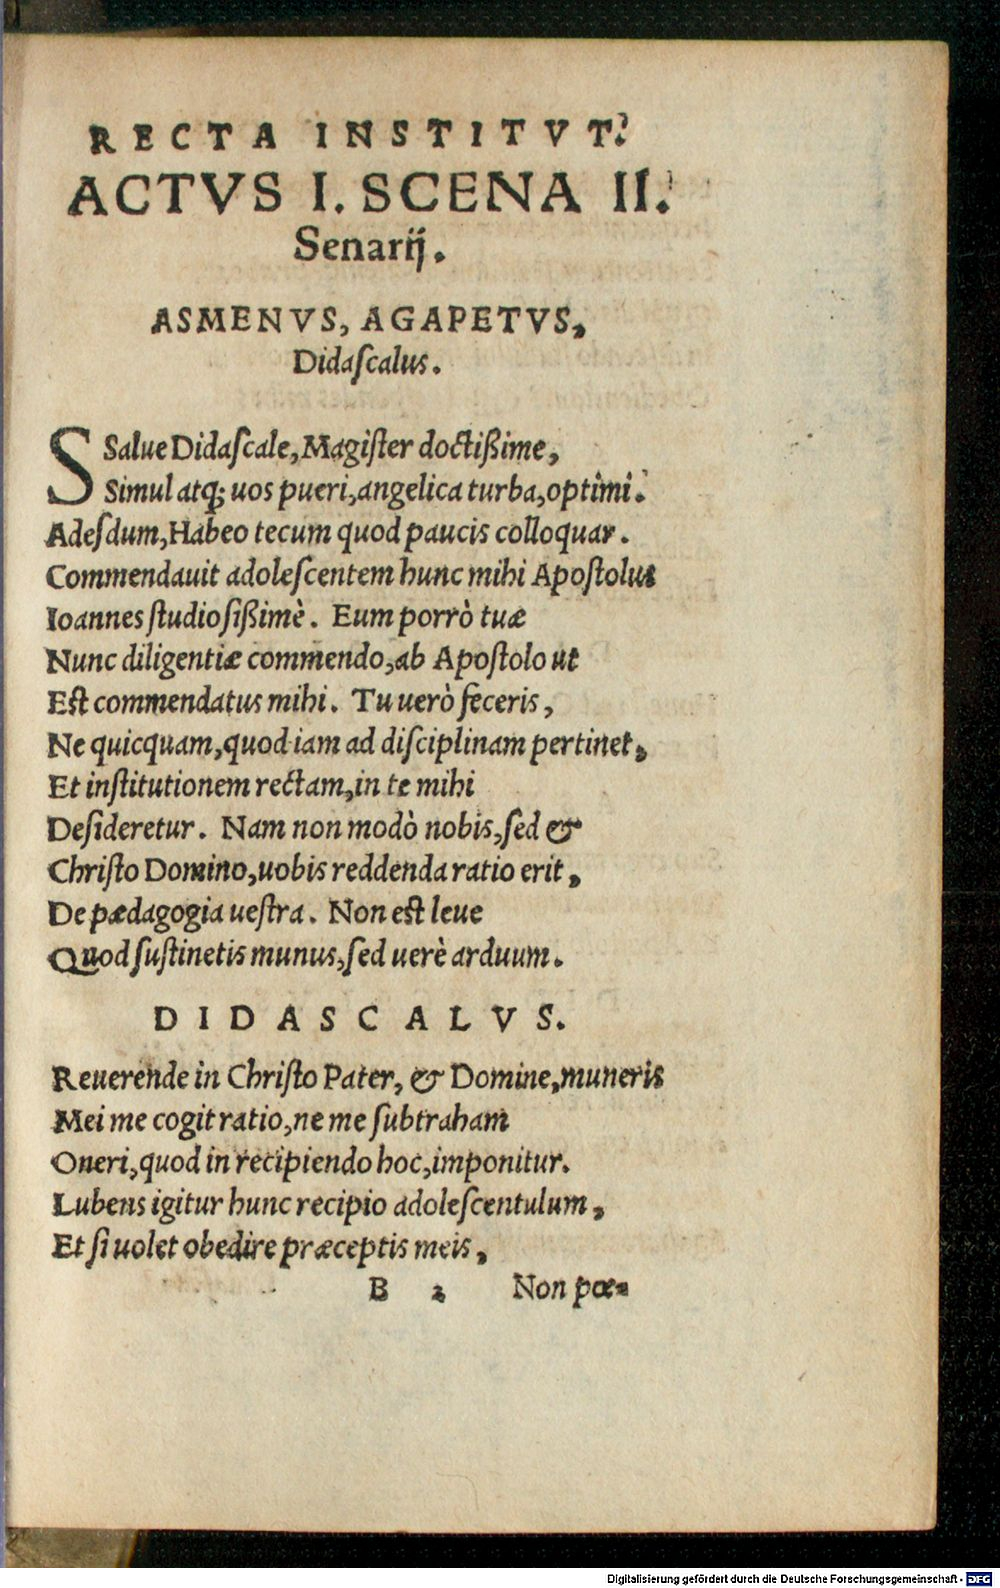 RECTA INSTITVT.
ACTVS I. SCENA II.
Senarij.
ASMENVS, AGAPETVS,
Didaſcalus.
SSalue Didaſcale, Magiſter doctißime,
Simul atq; uos pueri, angelica turba, optimi.
Adeſdum, Habeo tecum quod paucis colloquar.
Commendauit adoleſcentem hunc mihi Apoſtolus
Ioannes ſtudioſißimè. Eum porrò tuæ
Nunc diligentiæ commendo, ab Apoſtolo ut
Eſt commendatus mihi. Tu uerò feceris,
Ne quicquam, quod iam ad diſciplinam pertinet,
Et inſtitutionem rectam, in te mihi
Deſideretur. Nam non modò nobis, ſed &
Chriſto Domino, uobis reddenda ratio erit,
De pædagogia ueſtra. Non eſt leue
Quod ſuſtinetis munus, ſed uerè arduum.
DIDASCALVS.
Reuerende in Chriſto Pater, & Domine, muneris
Mei me cogit ratio, ne me ſubtraham
Oneri, quod in recipiendo hoc, imponitur.
Lubens igitur hunc recipio adoleſcentulum,
Et ſi uolet obedire præceptis meis,
B 2 Non pœ-
Digitalisierung gefördert durch die Deutsche Forschungsgemeinschaft - DFG